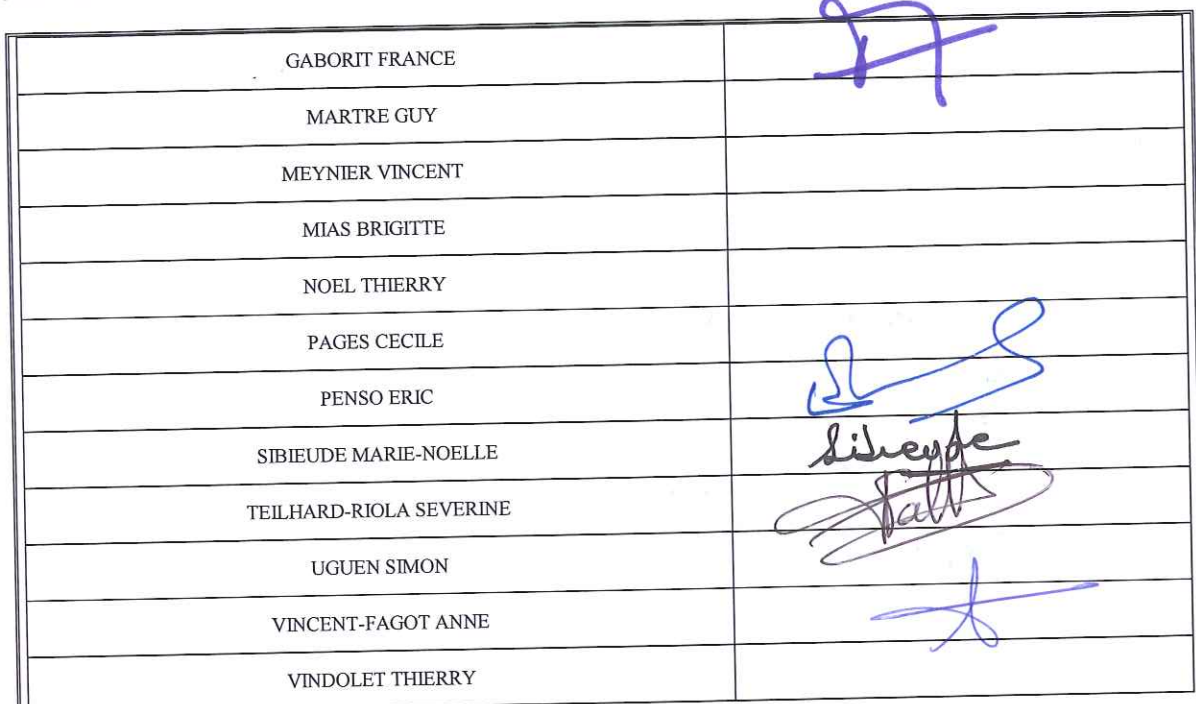 GABORIT FRANCE
MARTRE GUY
MEYNIER VINCENT
MIAS BRIGITTE
NOEL THIERRY
PAGES CECILE
PENSO ERIC
SIBIEUDE MARIE-NOELLE
Sibieude
TEILHARD-RIOLA SEVERINE
UGUEN SIMON
VINCENT-FAGOT ANNE
VINDOLET THIERRY